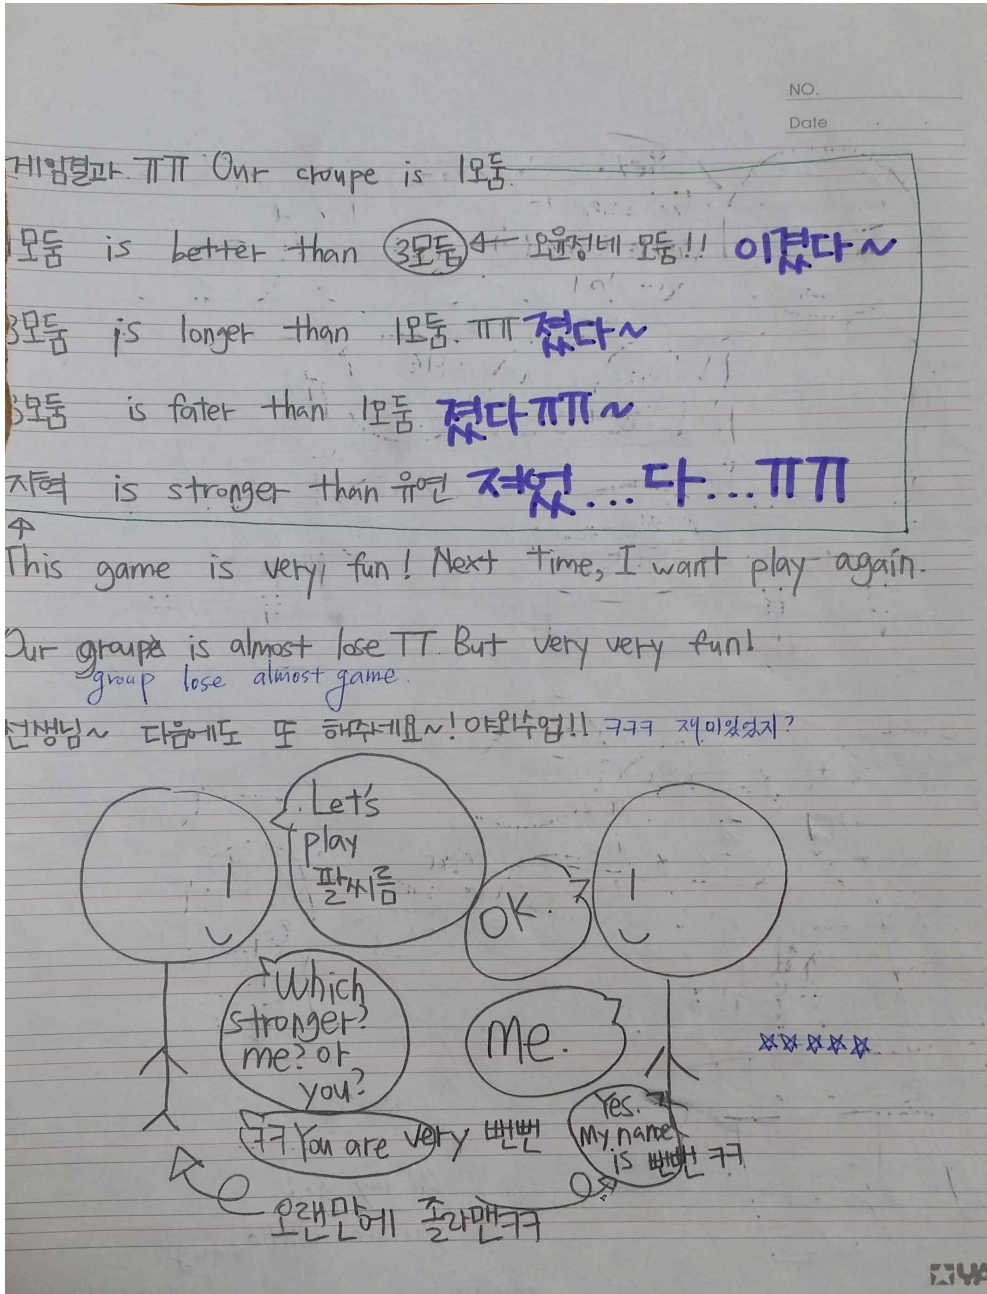 NO.
Date
게임결과 ㅠㅠ Our croupe is 1모둠.
1모둠 is better than 3모둠 ← 오윤정네 모둠!! 이겼다~
3모둠 is longer than 1모둠. ㅠㅠ 졌다~
3모둠 is fater than 1모둠. 졌다ㅠㅠ~
지혁 is stronger than 유연 져었...다...ㅠㅠ
This game is very fun! Next time, I want play again.
Our groupe is almost lose TT. But very very fun!
group lose almost game.
선생님~ 다음에도 또 해주세요~! 야외수업!! ㅋㅋㅋ 재미있었지?
Let's
play
팔씨름
OK.
Which
stronger?
me? or
you?
Me.
ㅋㅋ You are very 뻔뻔
Yes.
My name
is 뻔뻔 ㅋㅋ
오랜만에 졸라맨ㅋㅋ